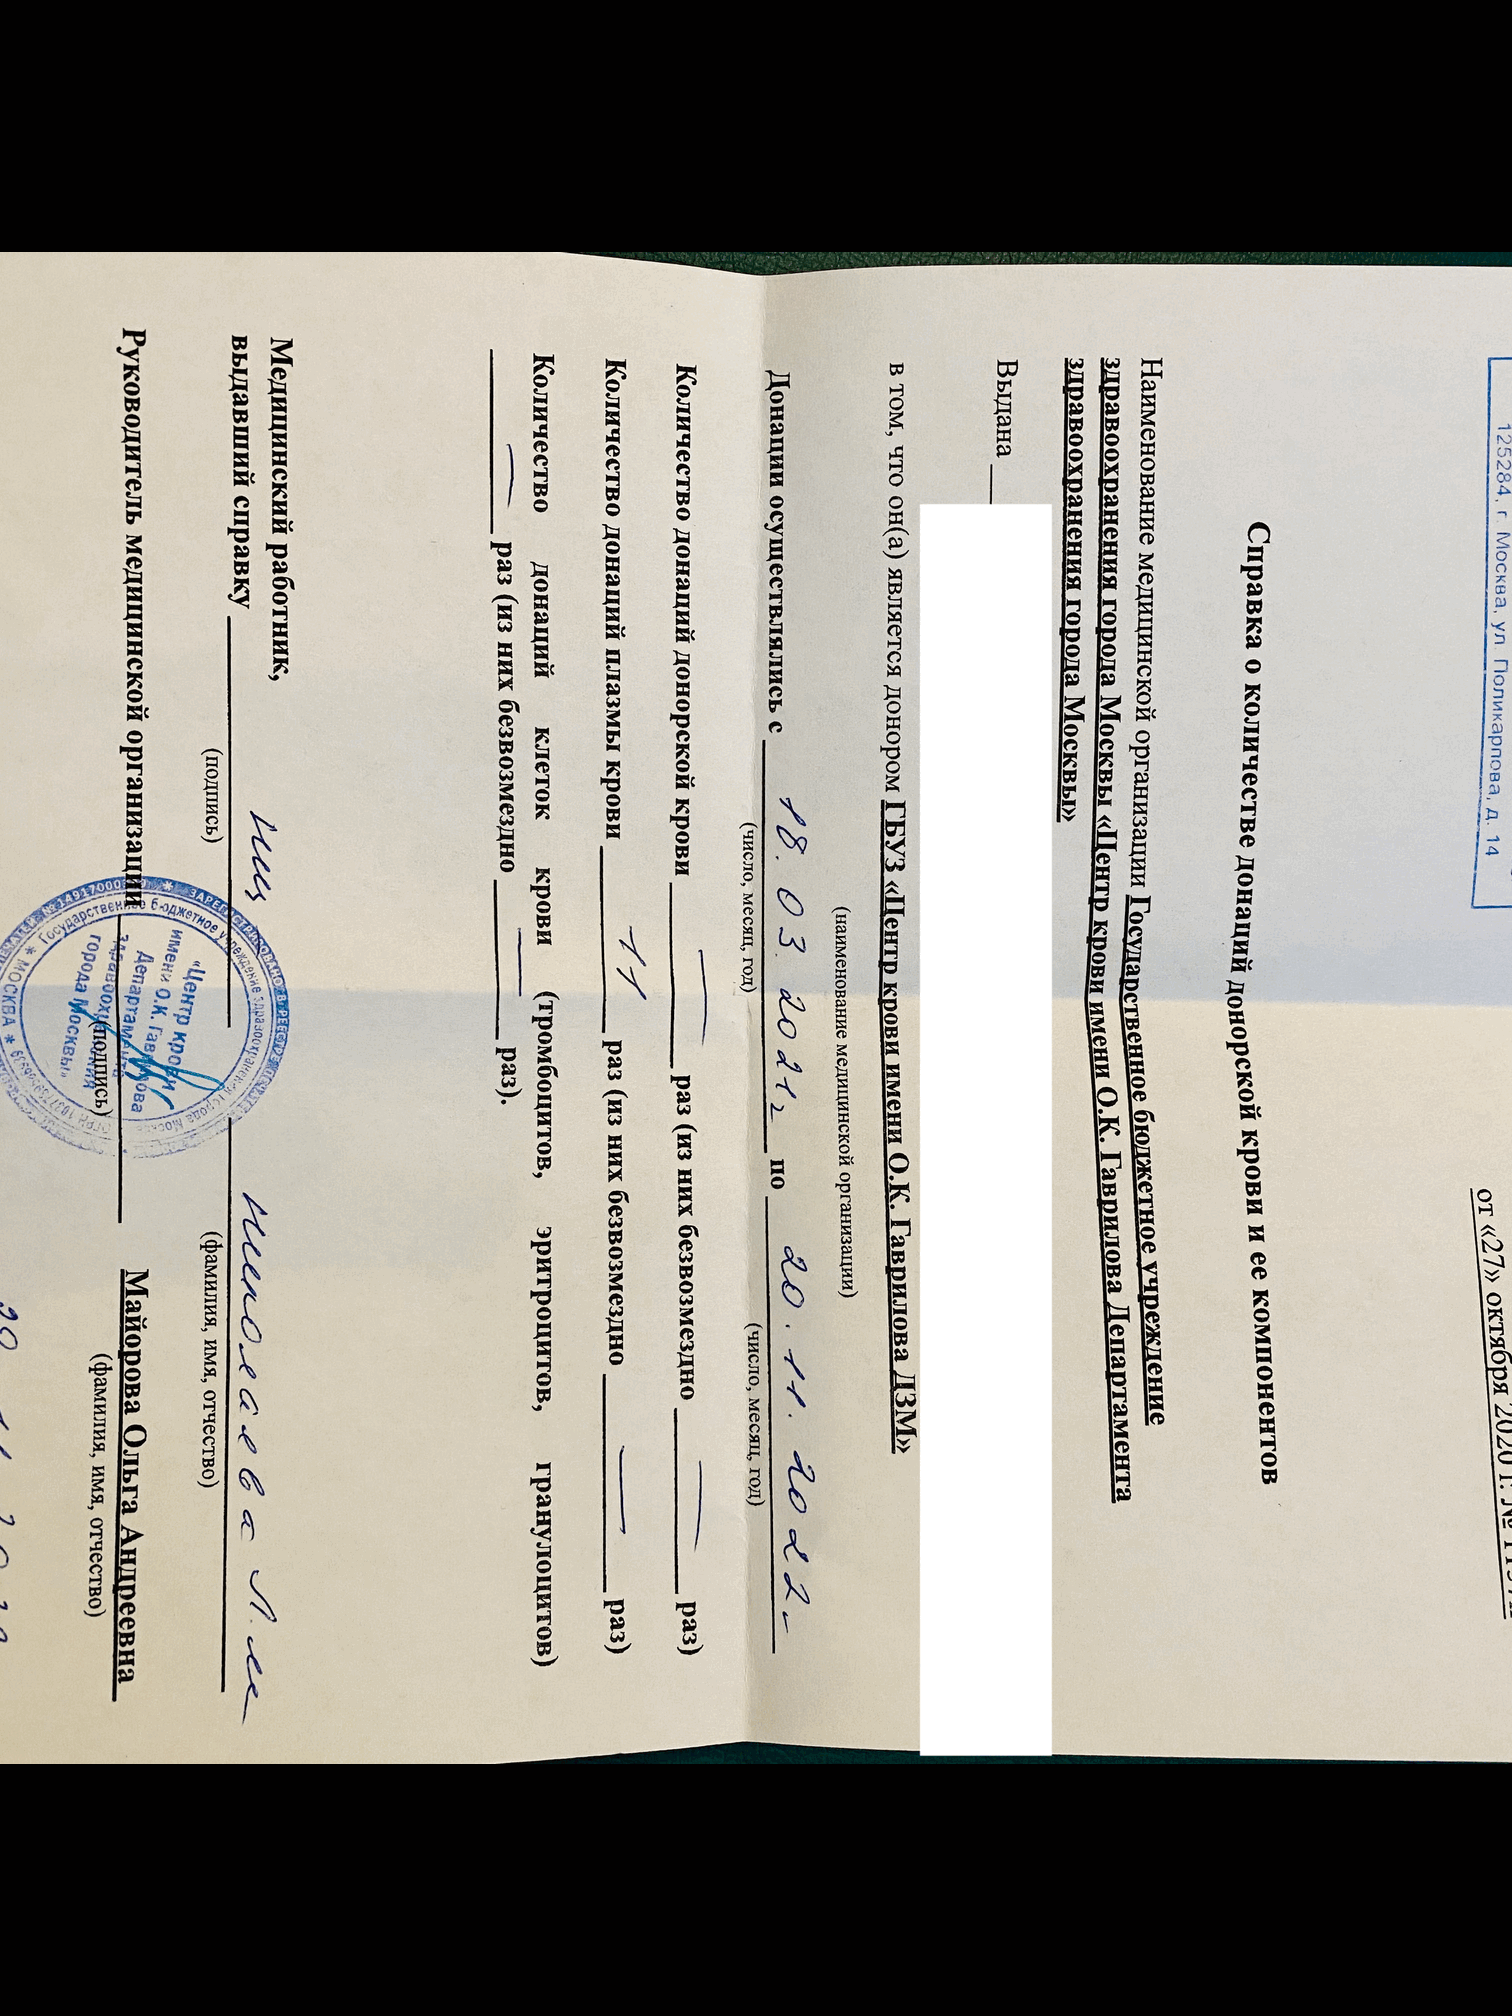 125284, г. Москва, ул. Поликарпова, д. 14
от «27» октября 2020 г. №
Справка о количестве донаций донорской крови и ее компонентов
Наименование медицинской организации Государственное бюджетное учреждение
здравоохранения города Москвы «Центр крови имени О.К. Гаврилова Департамента
здравоохранения города Москвы»
Выдана
в том, что он(а) является донором ГБУЗ «Центр крови имени О.К. Гаврилова ДЗМ»
(наименование медицинской организации)
Донации осуществлялись с 18.03.2021г по 20.11.2022
(число, месяц, год) (число, месяц, год)
Количество донаций донорской крови — раз (из них безвозмездно — раз)
Количество донаций плазмы крови 11 раз (из них безвозмездно — раз)
Количество донаций клеток крови (тромбоцитов, эритроцитов, гранулоцитов)
— раз (из них безвозмездно — раз).
Медицинский работник,
выдавший справку Николаева Л.М
(подпись) (фамилия, имя, отчество)
Руководитель медицинской организации Майорова Ольга Андреевна
(подпись) (фамилия, имя, отчество)
Государственное бюджетное учреждение здравоохранения города Москвы
«Центр крови
имени О.К. Гаврилова
Департамента
здравоохранения
города Москвы»
* МОСКВА *